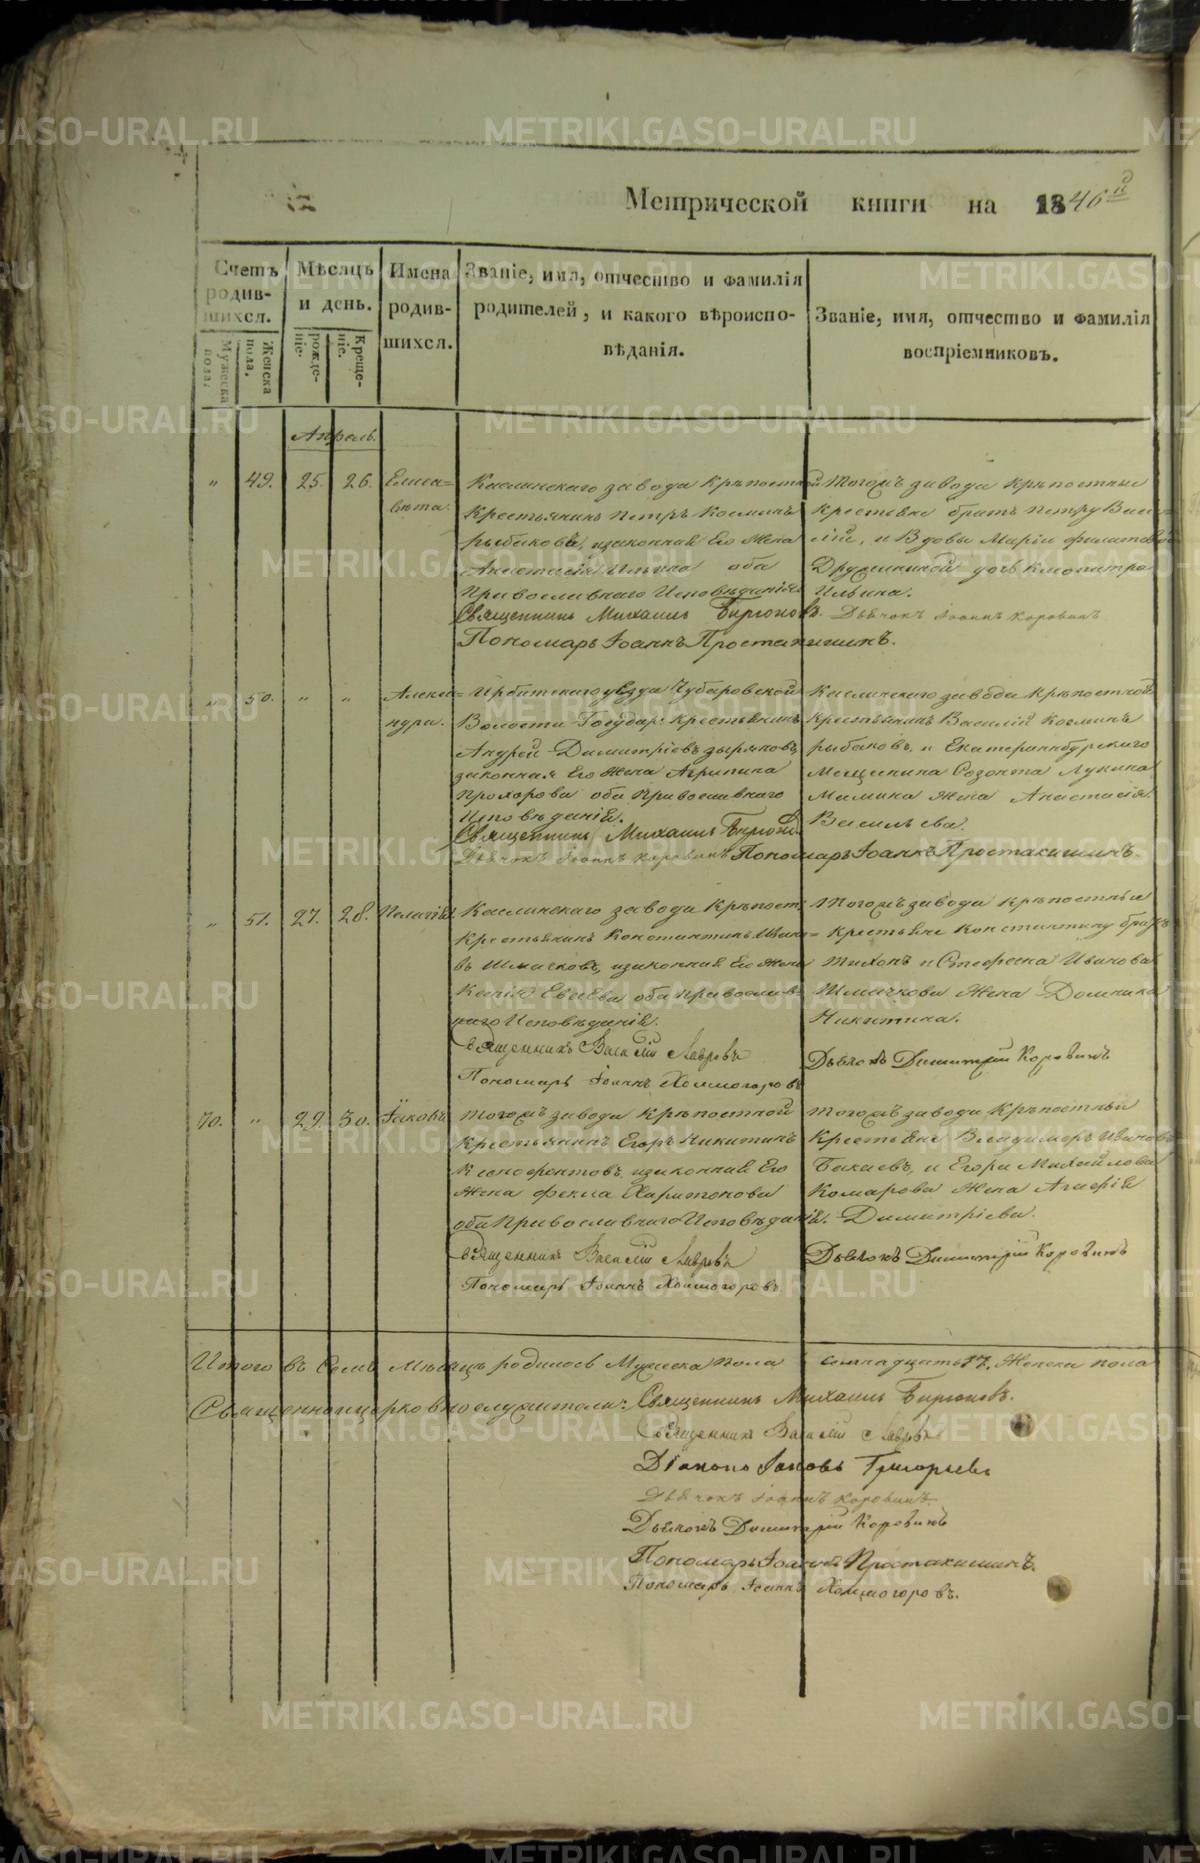 METRIKI.GASO-URAL.RU
Метрической книги на 1846й
Счетъ родив-шихся.
Мужеска пола.
Женска пола.
Мѣсяцъ и день.
рожде-ніе.
Креще-ніе.
Имена родив-шихся.
Званіе, имя, отчество и фамилія
родителей, и какого вѣроиспо-
вѣданія.
Званіе, имя, отчество и фамилія
воспріемниковъ.
Апрель.
" 49. 25. 26. Елиса=
вѣта.
Каслинскаго завода Крѣпостной
Крестьянинъ Петръ Косминъ
рыбаковъ, изаконная Его Жена
Анастасія Ильина оба
Православнаго Исповѣданія
Тогожъ завода крѣпостные
Крестьяне братъ Петру Васи
лій, и Вдовы Маріи
дочь
Ильина.
Священникъ Михаилъ Бирюковъ. Дьячокъ Іоаннъ Коровинъ
Пономарь Іоаннъ Простакишинъ.
" 50. " " Алекса=
ндра.
Ирбитскаго уѣзда Чубаровской
Волости Государ: крестьянинъ
Андрей Димитріевъ зыряновъ
законная Его Жена Агрипина
Прохорова оба Православнаго
Исповѣданія.
Каслинскаго завода Крѣпостной
Крестьянинъ Василій Косминъ
рыбаковъ, и Екатеринбургскаго
Мещанина Созонта Лукина
Мамина Жена Анастасія
Васильева.
Священникъ Михаилъ Бирюковъ
Дьячокъ Іоаннъ Коровинъ Пономарь Іоаннъ Простакишинъ.
" 51. 27. 28. Пелагія
Каслинскаго завода Крѣпост:
Крестьянинъ Константинъ Ивано=
въ Шмачковъ, изаконная Его Жена
Ксенія Евсева оба православ=
наго Исповѣданія.
Тогожъ завода крѣпостные
Крестьяне Константину братъ
Тихонъ и Стефана Иванова
Шмачкова Жена Домника
Никитина.
Священникъ Василій Лавровъ
Дьячокъ Димитрій Коровинъ
Пономарь Іоаннъ Холмогоровъ
70. " 29. 30. Іаковъ.
Тогожъ завода Крѣпостной
Крестьянинъ Егоръ Никитинъ
Ксенофонтовъ, изаконная Его
Жена Фекла Харитонова
оба Православнаго Исповѣданія.
Тогожъ завода Крѣпостные
Крестьяне Владимеръ Ивановъ
Бакаевъ, и Егора Михайлова
Комарова Жена Агафія
Димитріева.
Священникъ Василій Лавровъ
Дьячокъ Димитрій Коровинъ
Пономарь Іоаннъ Холмогоровъ.
Итого въ Семъ Мѣсяцѣ родилось Мужеска пола семнадцать 17. Женска пола
Священноицерковнослужители: Священникъ Михаилъ Бирюковъ.
Священникъ Василій Лавровъ
Діаконъ Іаковъ Григорьевъ
Дьячокъ Іоаннъ Коровинъ
Дьячокъ Димитрій Коровинъ
Пономарь Іоаннъ Простакишинъ.
Пономарь Іоаннъ Холмогоровъ.